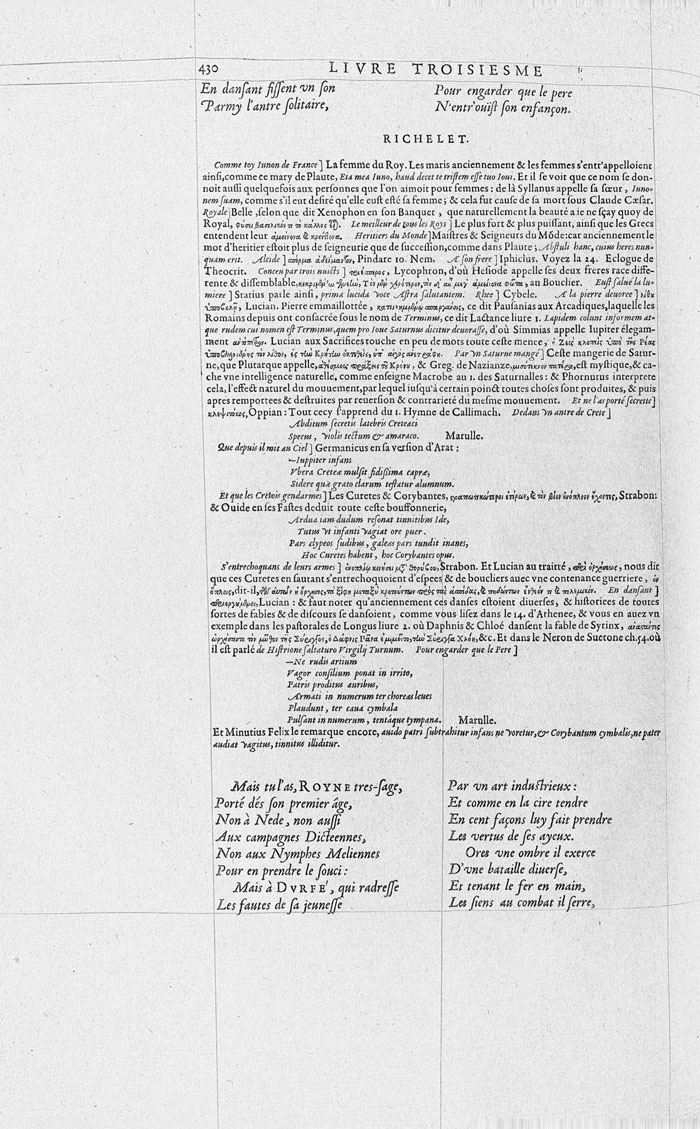 430 LIVRE TROISIESME
En dansant fissent vn son
Parmy l'antre solitaire,
Pour engarder que le pere
N'entr'ouïst son enfançon.
RICHELET.
Comme toy Iunon de France] La femme du Roy. Les maris anciennement & les femmes s'entr'appelloient
ainsi, comme ce mary de Plaute, Eia mea Iuno, haud decet te tristem esse tuo Ioui. Et il se voit que ce nom se don-
noit aussi quelquefois aux personnes que l'on aimoit pour femmes: de là Syllanus appelle sa sœur, Iuno-
nem suam, comme s'il eut desiré qu'elle eust esté sa femme; & cela fut cause de sa mort sous Claude Cæsar.
Royale] Belle, selon que dit Xenophon en son Banquet, que naturellement la beauté a ie ne sçay quoy de
Royal, Le meilleur de tous les Roys] Le plus fort & plus puissant, ainsi que les Grecs
entendent leur Heritiers du Monde] Maistres & Seigneurs du Móde: car anciennement le
mot d'heritier estoit plus de seigneurie que de succession, comme dans Plaute; Abstuli hanc, cuius heres nun-
quam erit. Alcide] Pindare 10. Nem. A son frere] Iphiclus. Voyez la 24. Eclogue de
Theocrit. Conceu par trois nuicts] Lycophron, d'où Hesiode appelle ses deux freres race diffe-
rente & dissemblable, au Bouclier. Eust salué la lu-
miere] Statius parle ainsi, primæ lucida voce Astra salutantem. Rhee] Cybele. A la pierre deuoree]
Lucian. Pierre emmaillottée, ce dit Pausanias aux Arcadiques, laquelle les
Romains depuis ont consacrée sous le nom de Terminus, ce dit Lactance liure 1. Lapidem colunt informem at-
que rudem cui nomen est Terminus, quem pro Ioue Saturnus dicitur deuorasse, d'où Simmias appelle Iupiter élegam-
ment Lucian aux Sacrifices touche en peu de mots toute ceste menee,
Par vn Saturne mangé] Ceste mangerie de Satur-
ne, que Plutarque appelle, & Greg. de Nazianze, est mystique, & ca-
che vne intelligence naturelle, comme enseigne Macrobe au 1. des Saturnalles: & Phornutus interprete
cela, l'effect naturel du mouuement, par lequel iusqu'à certain poinct toutes choses sont produites, & puis
apres remportees & destruites par reuersion & contrarieté du mesme mouuement. Et ne l'as porté secrette]
Oppian: Tout cecy s'apprend du 1. Hymne de Callimach. Dedans vn antre de Crete]
Abditum secretis latebris Creteaci
Specus, violis tectum & amaraco. Marulle.
Que depuis il mit au Ciel] Germanicus en sa version d'Arat:
—Iuppiter infans
Vbera Creteæ mulsit fidissima capræ,
Sidere quæ grato clarum testatur alumnum.
Et que les Cretois gendarmes] Les Curetes & Corybantes, Strabon:
& Ouide en ses Fastes deduit toute ceste bouffonnerie,
Ardua iam dudum resonat tinnitibus Ide,
Tutus vt infanti vagiat ore puer.
Pars clypeos sudibus, galeas pars tundit inanes,
Hoc Curetes habent, hoc Corybantes opus.
S'entrechoquans de leurs armes] Strabon. Et Lucian au traitté, nous dit
que ces Curetes en sautant s'entrechoquoient d'espees & de boucliers auec vne contenance guerriere,
dit-il, En dansant]
Lucian: & faut noter qu'anciennement ces danses estoient diuerses, & historiées de toutes
sortes de fables & de discours se dansoient, comme vous lisez dans le 14. d'Athenée, & vous en auez vn
exemple dans les pastorales de Longus liure 2. où Daphnis & Chloé dansent la fable de Syrinx,
&c. Et dans le Neron de Suetone ch. 54. où
il est parlé de Histrione saltaturo Virgilij Turnum. Pour engarder que le Pere]
—Ne rudis artium
Vagor consilium ponat in irrito,
Patris proditus auribus,
Armati in numerum ter choreas leues
Plaudunt, ter caua cymbala
Pulsant in numerum, tentáque tympana. Marulle.
Et Minutius Felix le remarque encore, auido patri subtrahitur infans ne voretur, & Corybantum cymbalis, ne pater
audiat vagitus, tinnitus illiditur.
Mais tu l'as, ROYNE tres-sage,
Porté dés son premier âge,
Non à Nede, non aussi
Aux campagnes Dicteennes,
Non aux Nymphes Meliennes
Pour en prendre le souci:
Mais à DVRFE', qui radresse
Les fautes de sa jeunesse
Par vn art industrieux:
Et comme en la cire tendre
En cent façons luy fait prendre
Les vertus de ses ayeux.
Ores vne ombre il exerce
D'vne bataille diuerse,
Et tenant le fer en main,
Les siens au combat il serre,